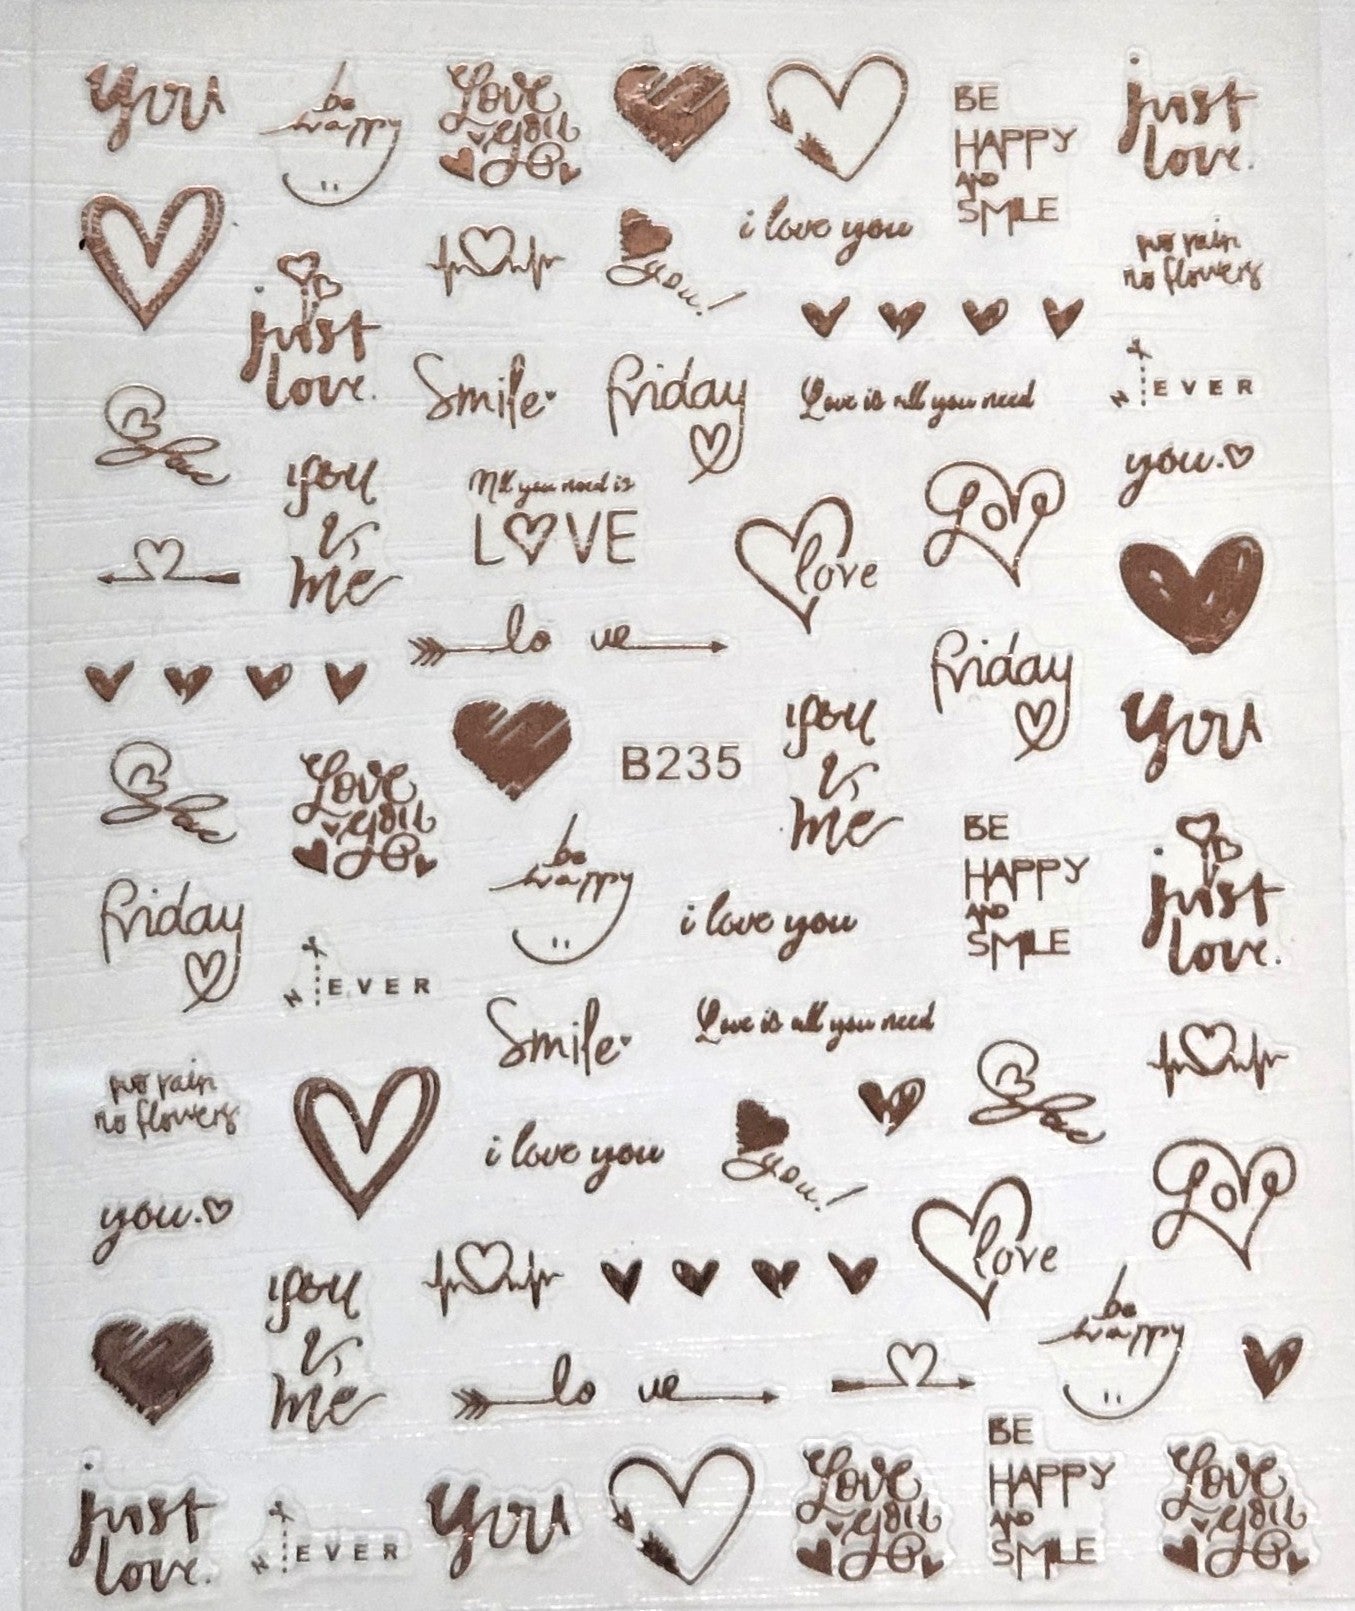 you
be
happy
Love
you
BE
HAPPY
AND
SMILE
just
love.
i love you
you!
no rain
no flowers
just
love.
Smile
friday
Love is all you need
NEVER
you.
you
&
me
All you need is
LOVE
love
Love
lo ve
friday
you
B235
you
&
me
Love
you
be
happy
BE
HAPPY
AND
SMILE
just
love.
friday
i love you
NEVER
Smile
Love is all you need
no rain
no flowers
i love you
you!
Love
you.
love
you
&
me
be
happy
lo ve
BE
HAPPY
AND
SMILE
just
love.
NEVER
you
Love
you
Love
you